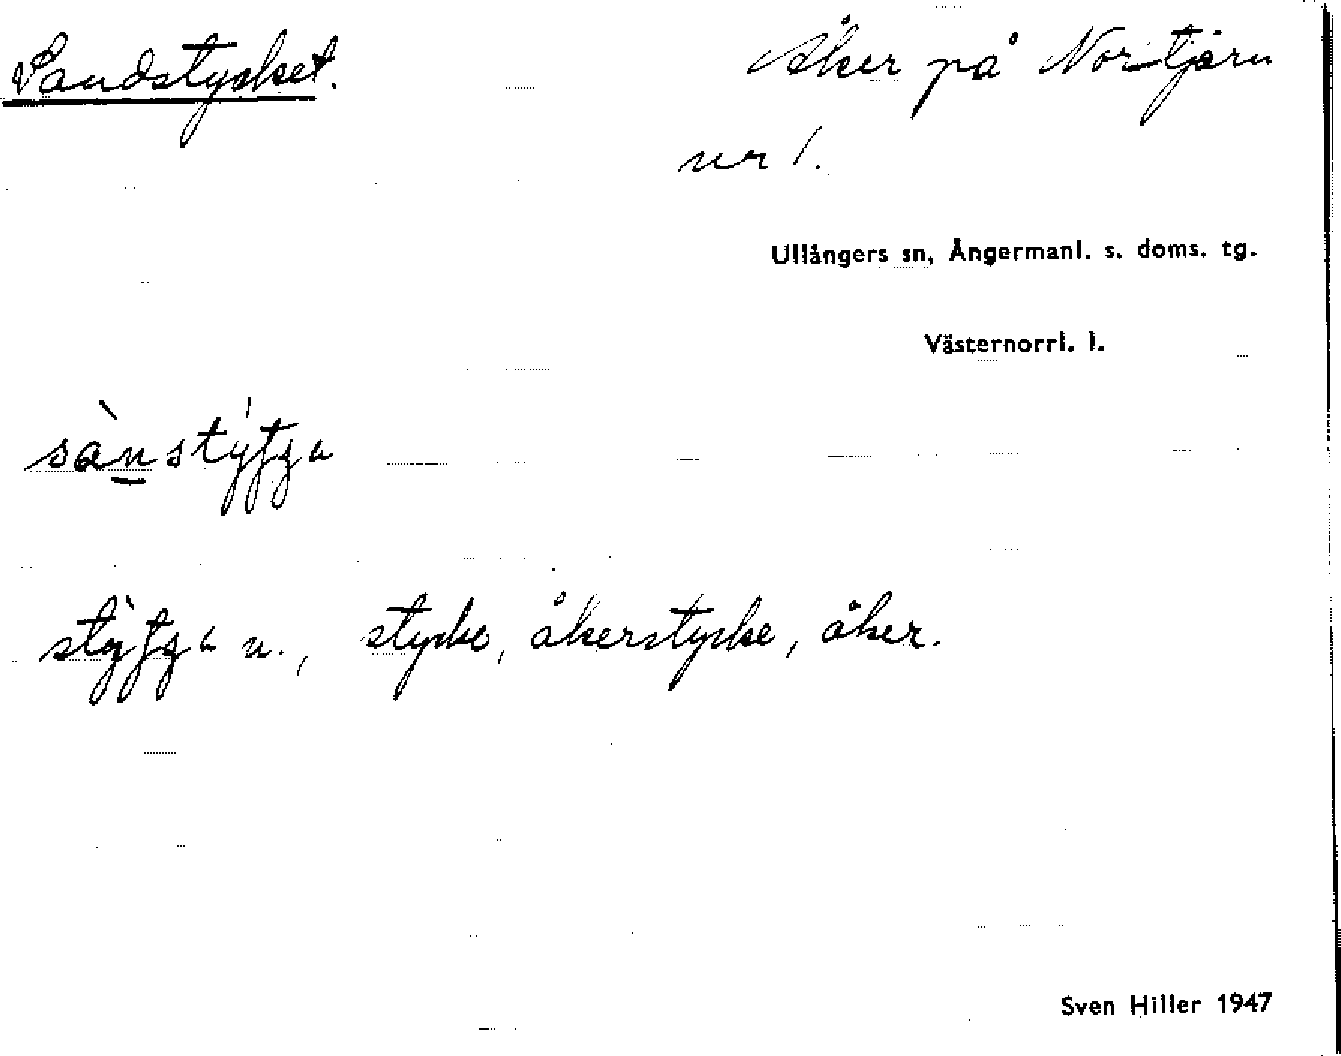 Sandstycket.
Åker på Nortjärn
nr 1.
Ullångers sn, Ångermanl. s. doms. tg.
Västernorrl. l.
stycke, åkerstycke, åker.
Sven Hiller 1947